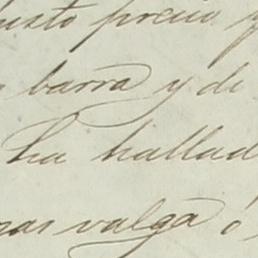 justo precio y
barra y de
ha hallad
mas valga ó